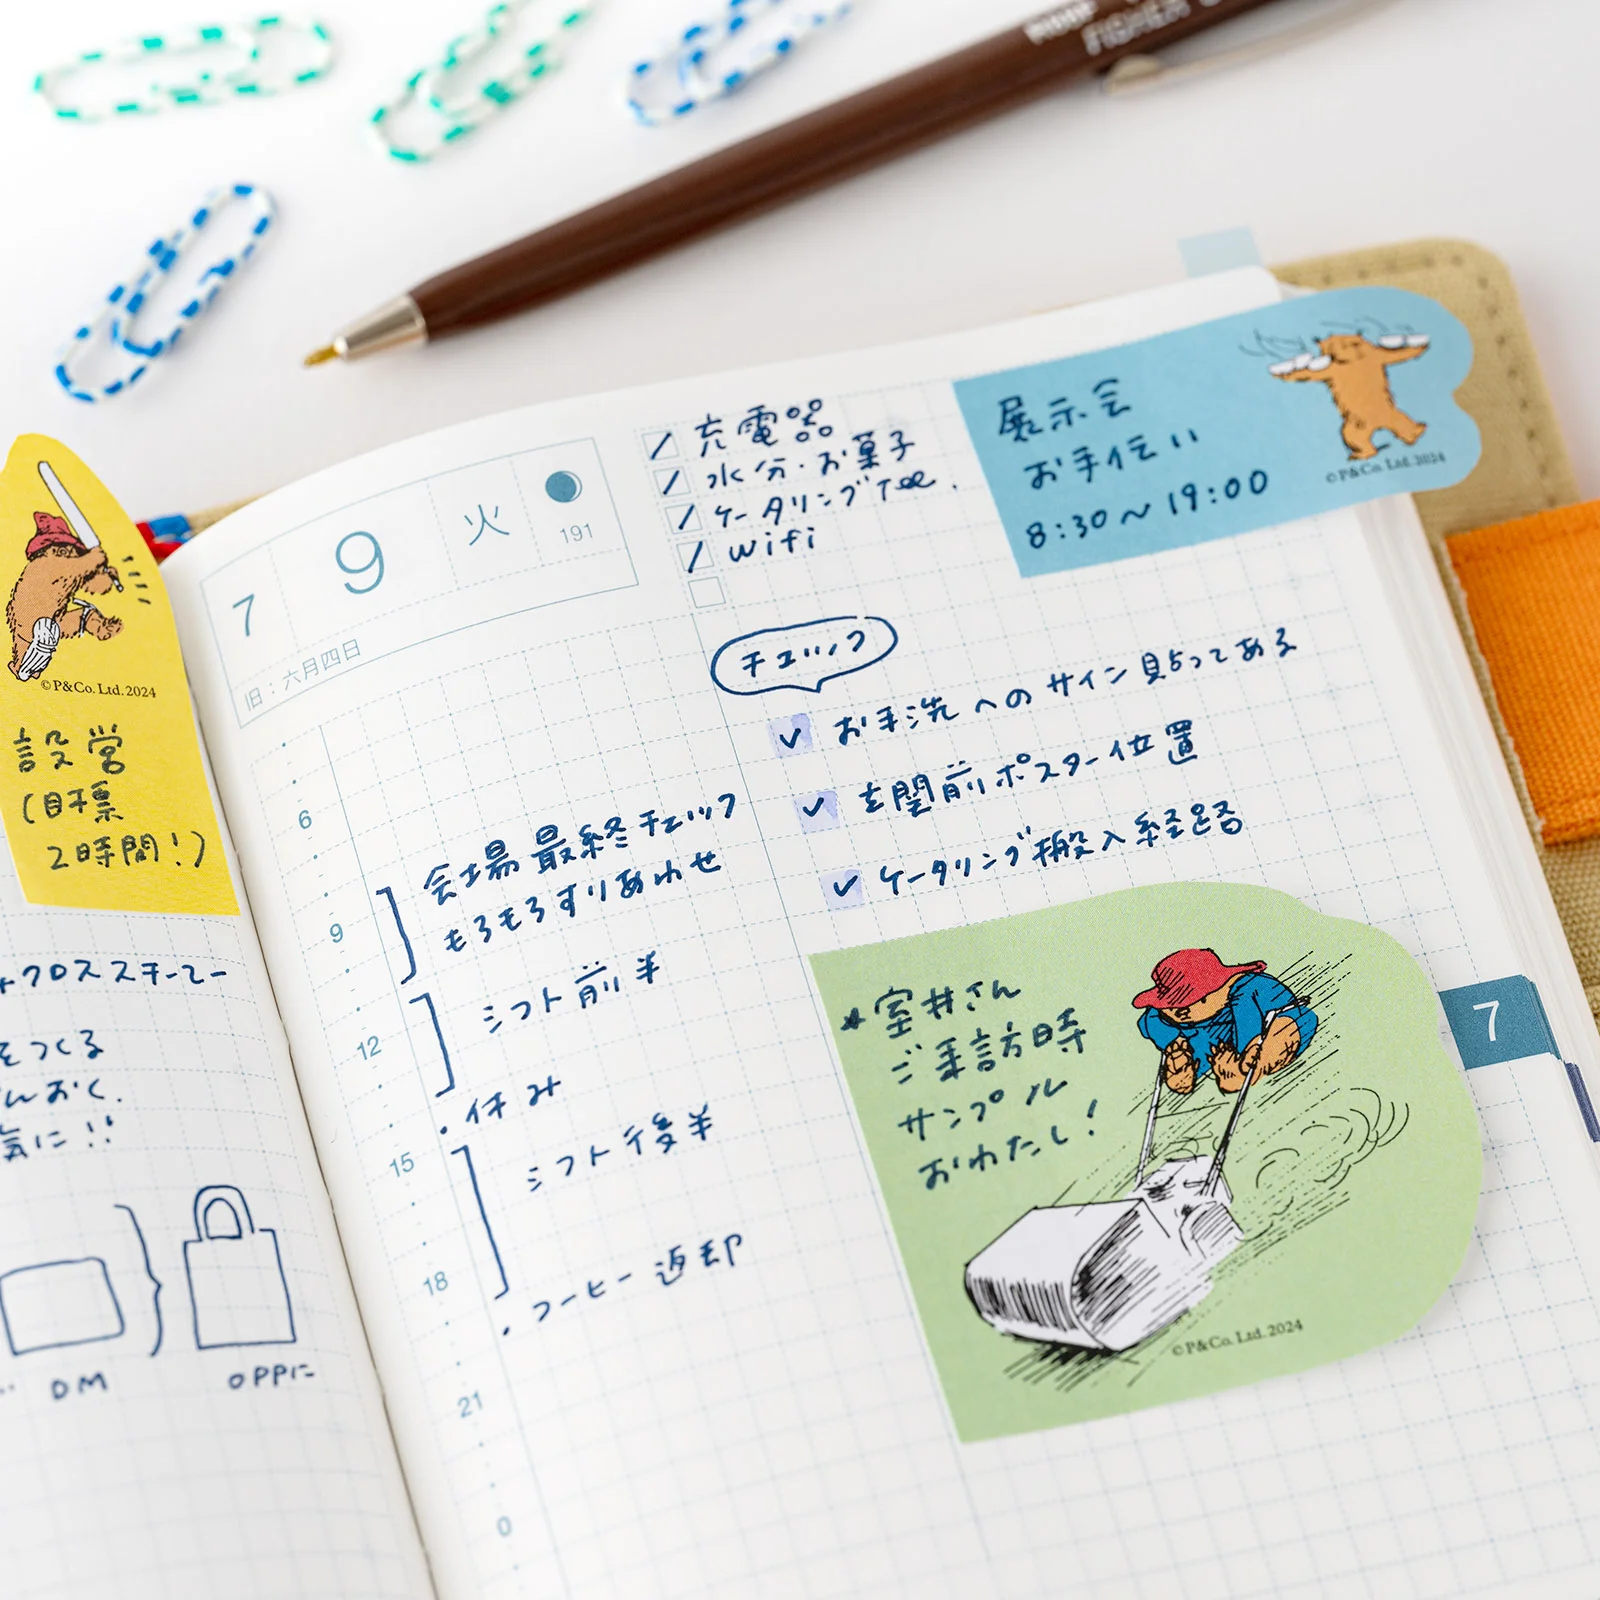 FISHER
©P&Co. Ltd. 2024
設営
(目標
2時間!)
クロスステッチ
をつくる
んおく.
気に!!
DM
OPPに
7 9 火 191
旧:六月四日
充電器
水分・お菓子
ケータリングTEL.
wifi
展示会
お手伝い
8:30〜19:00
©P&Co. Ltd. 2024
チェック
お手洗へのサイン貼ってある
玄関前ポスター位置
ケータリング搬入経路
6
会場最終チェック
もろもろすりあわせ
9
シフト前半
12
・休み
15
シフト後半
18
・コーヒー返却
21
0
*室井さん
ご来訪時
サンプル
おわたし!
©P&Co. Ltd. 2024
7